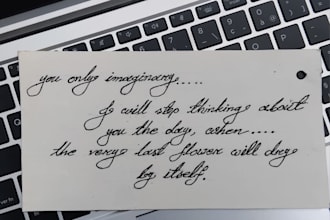 you only imaginary.....
I will stop thinking about
you the day, when....
the very last flower will dry
by itself.